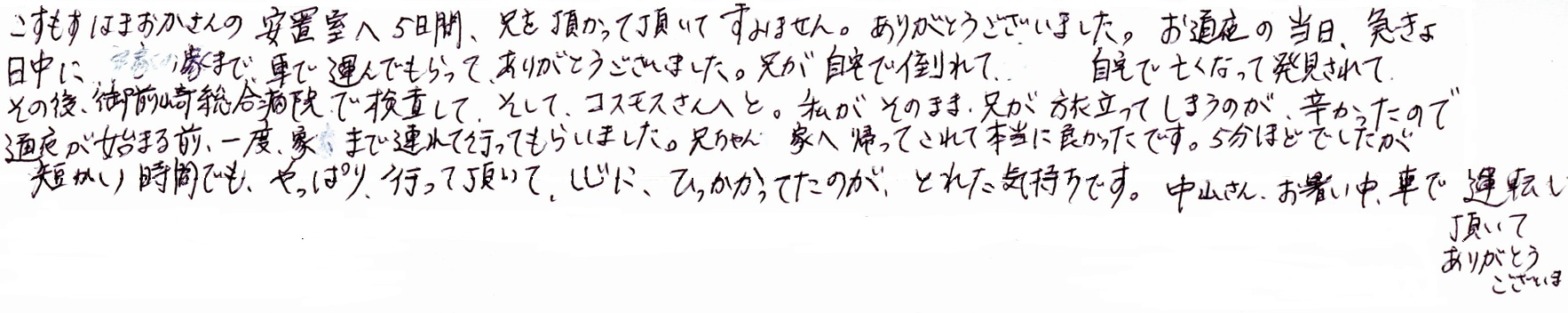 こすもすはまおかさんの 安置室へ 5日間、兄を 頂かって頂いて すみません。ありがとうございました。お通夜の 当日、急きょ
日中に 家まで 車で 運んでもらって、ありがとうございました。兄が 自宅で倒れて、 自宅で亡くなって発見されて、
その後、御前崎総合病院で検査して、そして、コスモスさんへと。私が そのまま、兄が 旅立ってしまうのが、辛かったので
通夜が始まる前、一度、家 まで連れて行ってもらいました。兄ちゃん 家へ帰ってこれて本当に良かったです。5分ほどでしたが
短かい時間でも、やっぱり、行って頂いて、しじに、ひっかかってたのが、とれた気持ちです。中山さん、お暑い中、車で 運転し
頂いて
ありがとう
ございま